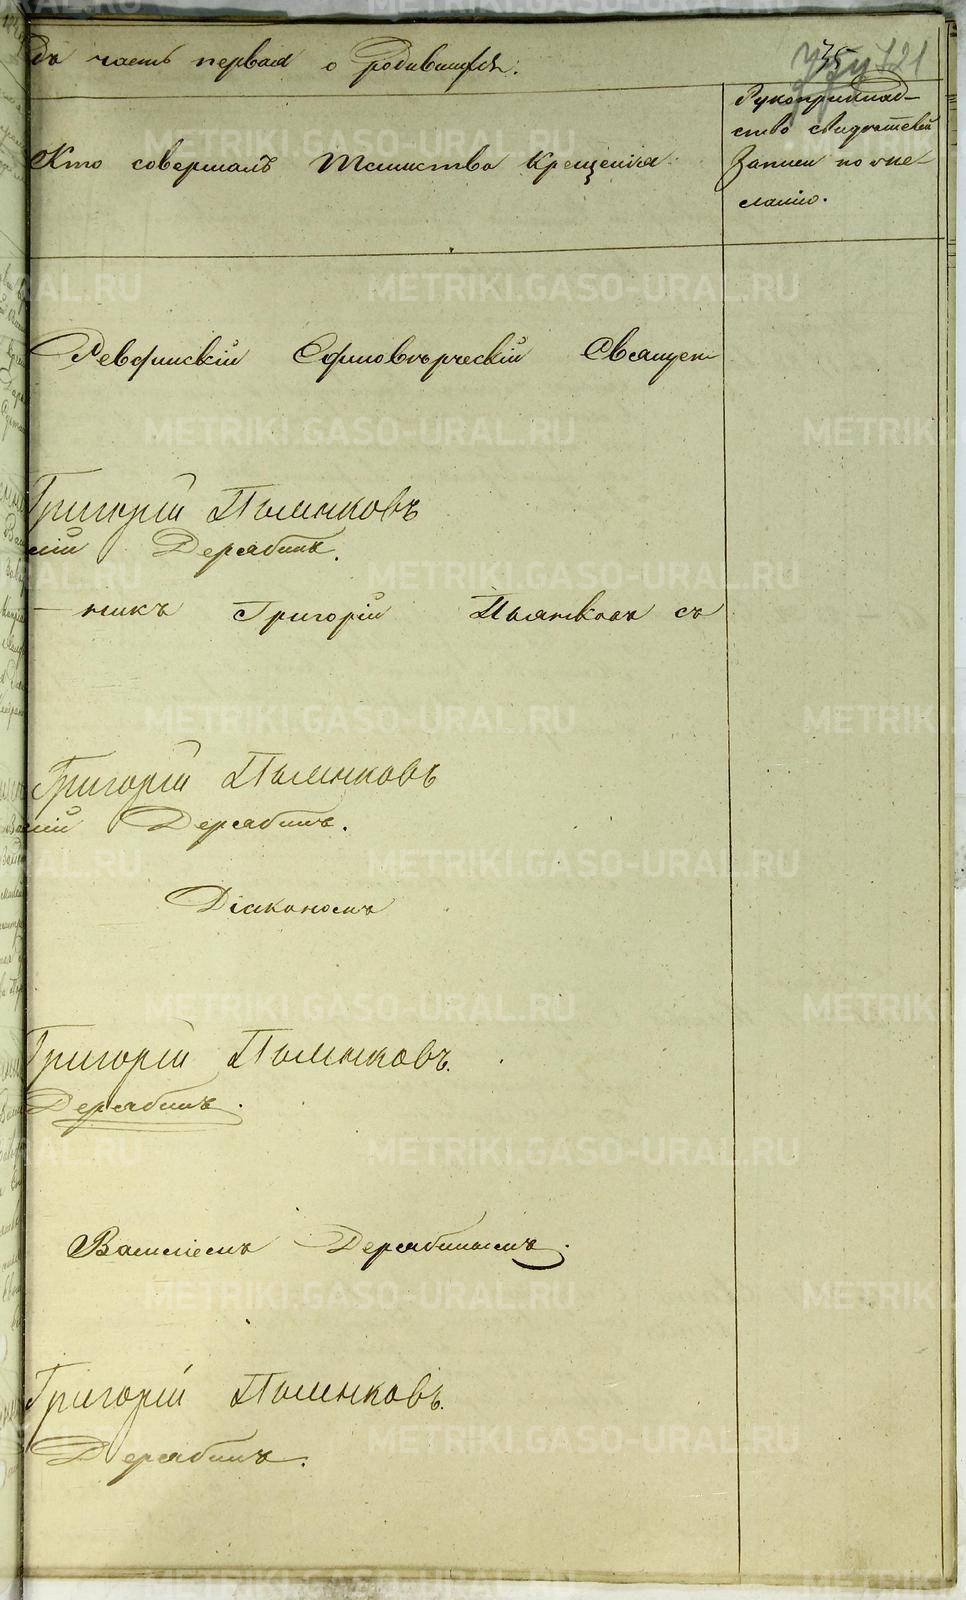 да часть первая о родившихся:
121
Кто совершалъ Таинство Крещенія
Рукоприклад-
ство свидѣтелей
записи по же-
ланію.
Ревдинскій Единовѣрческій Священ
Григорій Пьянковъ
лій Дерябинъ.
— никъ Григорій Пьянковъ съ
Григорій Пьянковъ
лій Дерябинъ.
Діакономъ
Григорій Пьянковъ.
Дерябинъ.
Василіемъ Дерябинымъ.
Григорій Пьянковъ.
Дерябинъ.
METRIKI.GASO-URAL.RU